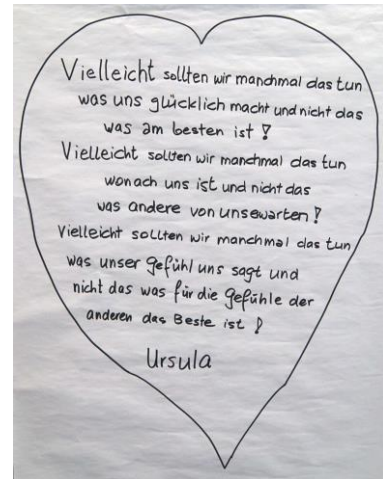 Vielleicht sollten wir manchmal das tun
was uns glücklich macht und nicht das
was am besten ist !
Vielleicht sollten wir manchmal das tun
wonach uns ist und nicht das
was andere von unsewarten !
Vielleicht sollten wir manchmal das tun
was unser Gefühl uns sagt und
nicht das was für die Gefühle der
anderen das Beste ist !
Ursula